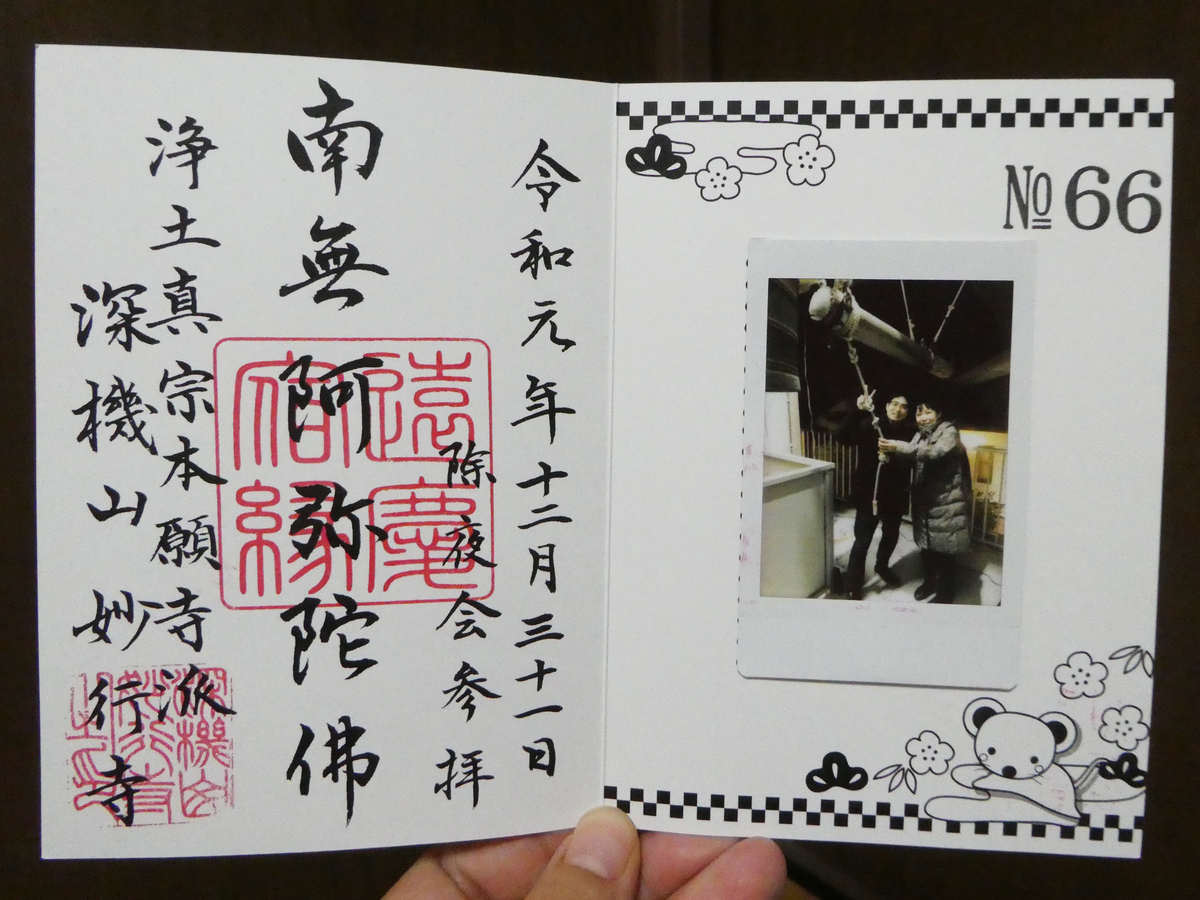 令和元年十二月三十一日
除夜会参拝
南無阿弥陀佛
浄土真宗本願寺派
深機山妙行寺
遠慶宿縁
№66